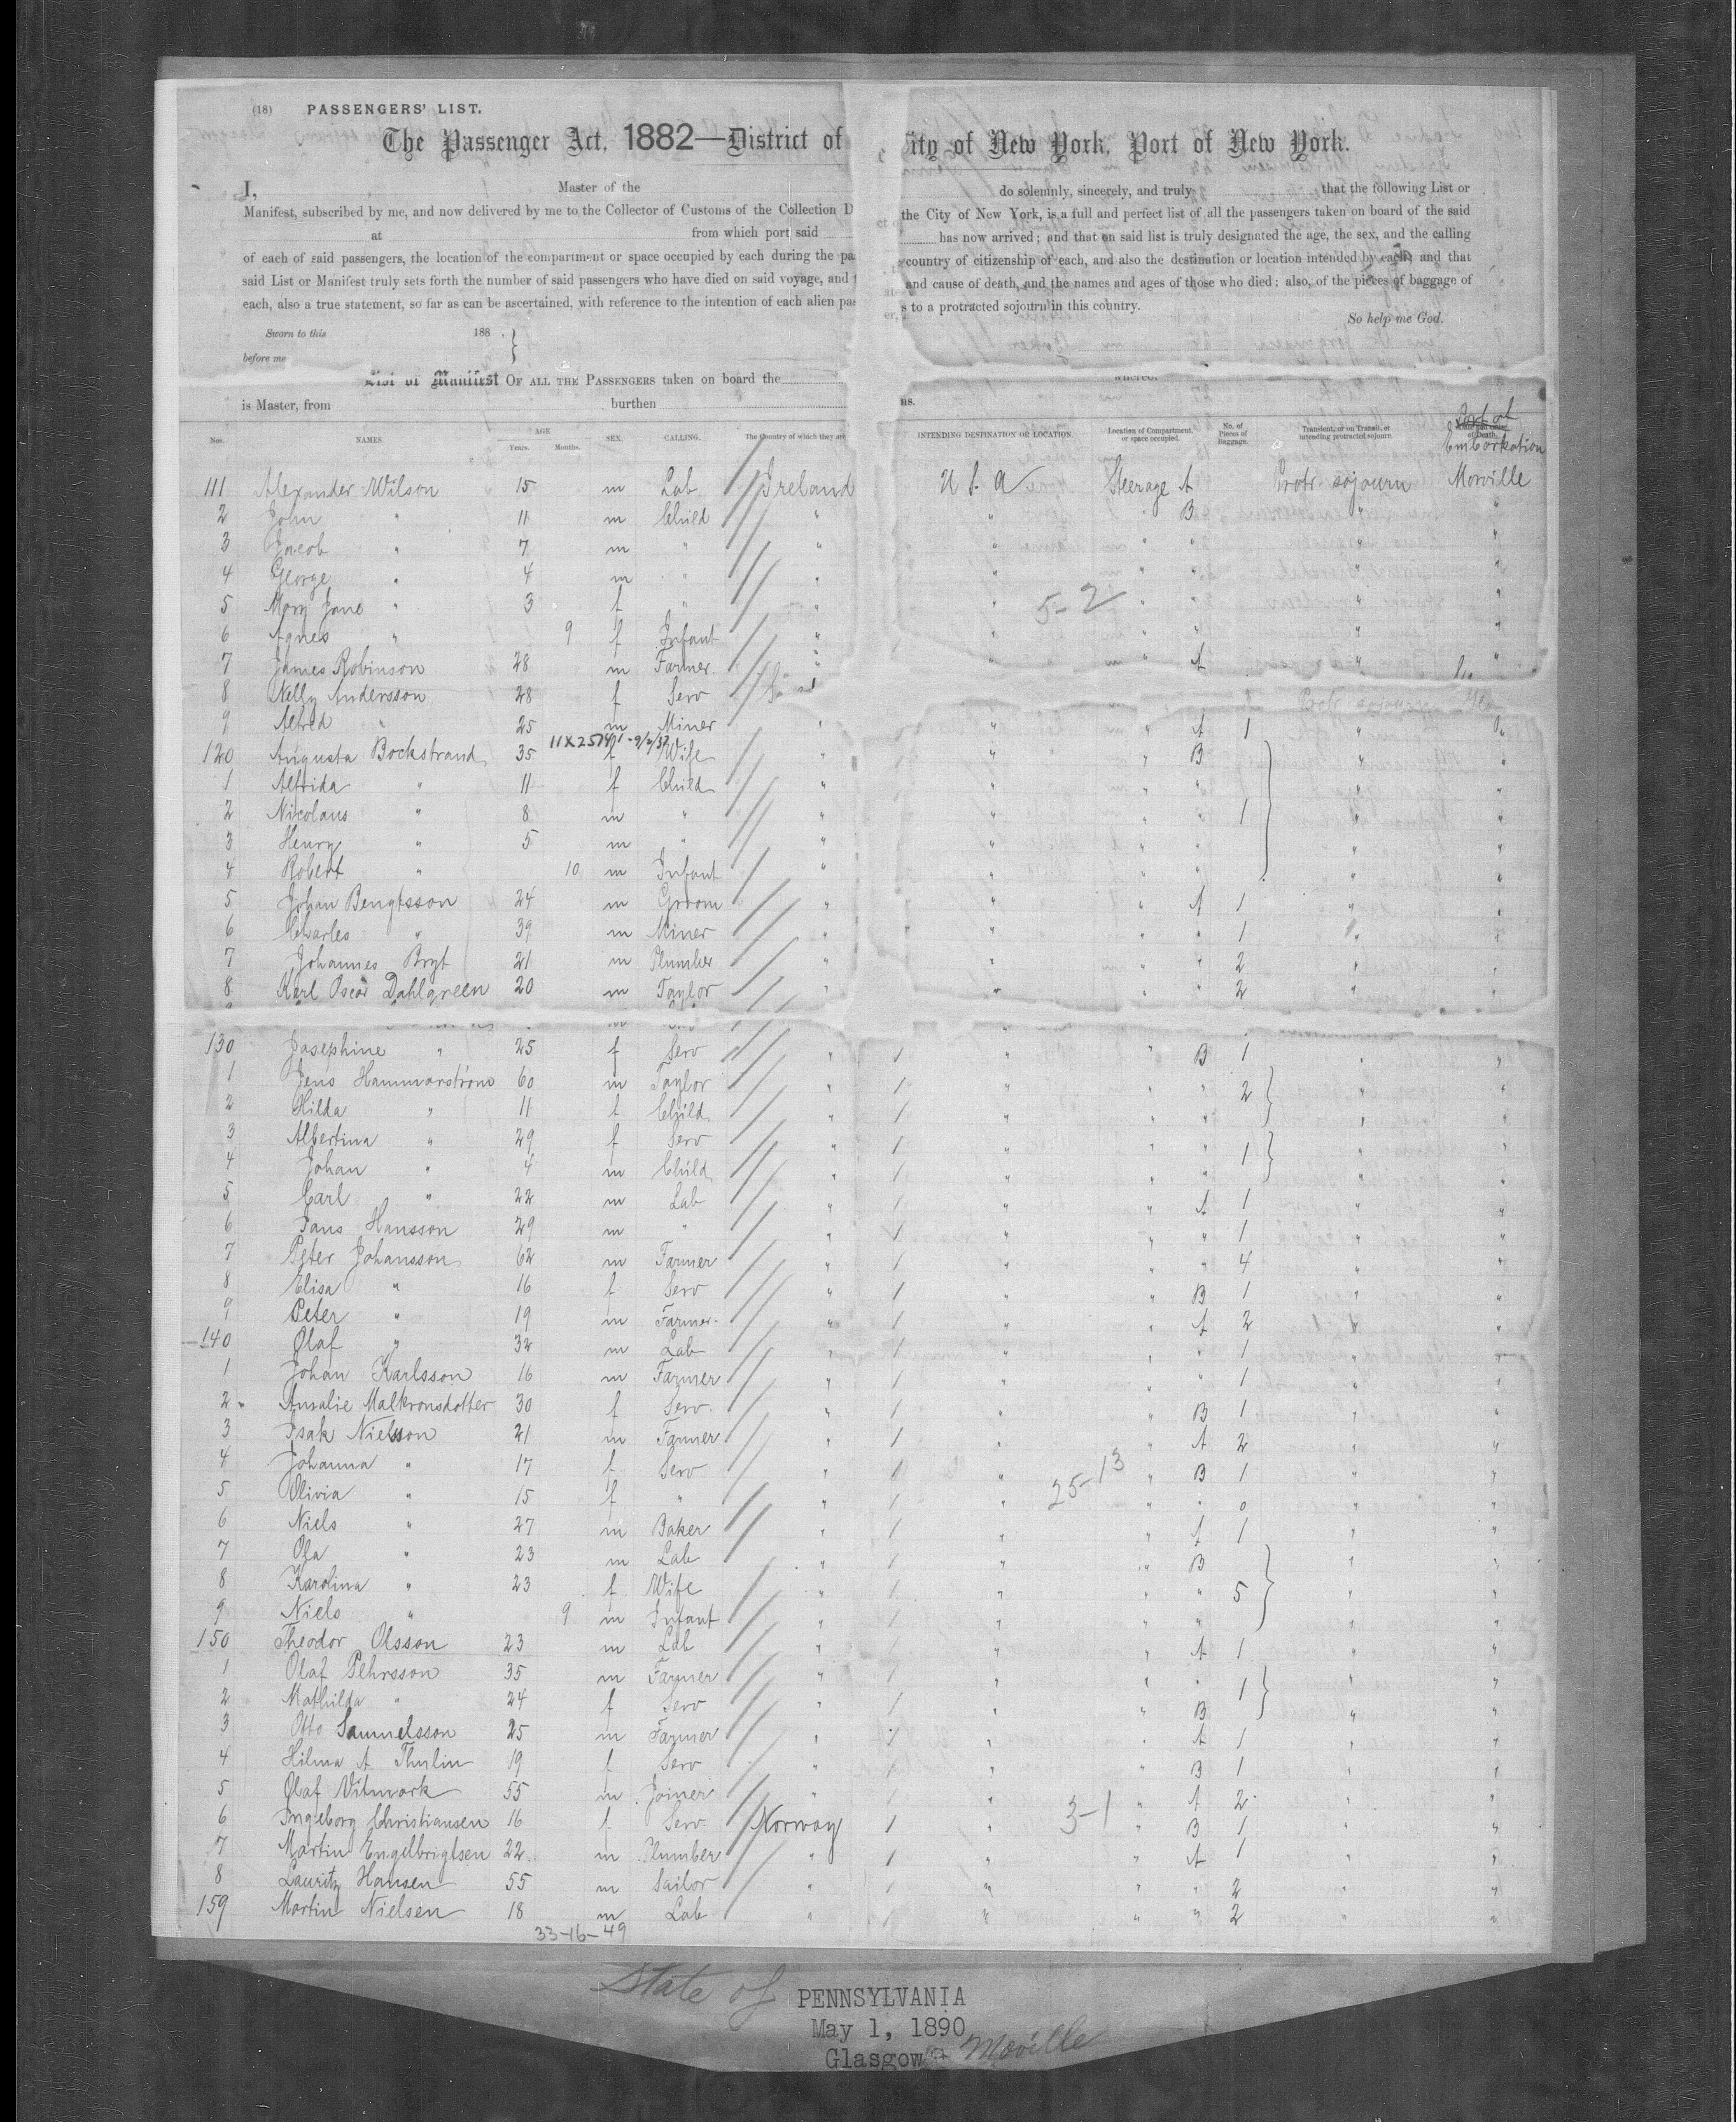 (18) PASSENGERS' LIST.
The Passenger Act, 1882—District of ity of New York, Port of New York.
I, Master of the do solemnly, sincerely, and truly that the following List or
Manifest, subscribed by me, and now delivered by me to the Collector of Customs of the Collection D the City of New York, is a full and perfect list of all the passengers taken on board of the said
at from which port said has now arrived; and that on said list is truly designated the age, the sex, and the calling
of each of said passengers, the location of the compartment or space occupied by each during the pa country of citizenship of each, and also the destination or location intended by each; and that
said List or Manifest truly sets forth the number of said passengers who have died on said voyage, and and cause of death, and the names and ages of those who died; also, of the pieces of baggage of
each, also a true statement, so far as can be ascertained, with reference to the intention of each alien pas s to a protracted sojourn in this country.
So help me God.
Sworn to this 188
before me
List or Manifest OF ALL THE PASSENGERS taken on board the whereof
is Master, from burthen ns.
Nos. NAMES. AGE Years. Months. SEX. CALLING. The Country of which they are INTENDING DESTINATION OR LOCATION. Location of Compartment, or space occupied. No. of Pieces of Baggage. Transient, or on Transit, or intending protracted sojourn Port of Embarkation
111 Alexander Wilson 15 m Lab Ireland U.S.A Steerage A Protr. sojourn Morville
2 John " 11 m Child " " B " "
3 Jacob " 7 m " " " " " " "
4 George " 4 m " " " " " " "
5 Mary Jane " 3 f " " " 5-2 " " " "
6 Agnes " 9 f Infant " " " " " "
7 James Robinson 28 m Farmer " " " A " "
8 Nelly Andersson 28 f Serv Protr sojourn
9 Alfred " 25 m Miner " " " A 1 " "
11X2574
120 Augusta Bockstrand 35 f Wife " " " B " "
1 Alfrida " 11 f Child " " " " " "
2 Nicolaus " 8 m " " " " " 1 " "
3 Henry " 5 m " " " " " " "
4 Robert " 10 m Infant " " " " " "
5 Johan Bengtsson 24 m Groom " " " A 1 " "
6 Charles " 39 m Miner " " " " 1 " "
7 Johannes Bryt 21 m Plumber " " " " 2 " "
8 Karl Oscar Dahlgreen 20 m Taylor " " " " 2 " "
130 Josephine " 25 f Serv " 1 " " B 1 " "
1 Jens Hammarström 60 m Taylor " 1 " " " 2 " "
2 Hilda " 11 f Child " 1 " " " " "
3 Albertina " 29 f Serv " 1 " " " 1 " "
4 Johan " 4 m Child " 1 " " " " "
5 Carl " 22 m Lab " 1 " " A 1 " "
6 Hansson 29 m " " 1 " " " 1 " "
7 Peter Johansson 62 m Farmer " 1 " " " 4 " "
8 Elisa " 16 f Serv " 1 " " B 1 " "
9 Peter " 19 m Farmer " 1 " " A 2 " "
140 Olaf " 32 m Lab " 1 " " " 1 " "
1 Johan Karlsson 16 m Farmer " 1 " " " 1 " "
2 Amalie Malkronsdotter 30 f Serv. " 1 " " B 1 " "
3 Isak Nielsson 21 m Farmer " 1 " " A 2 " "
4 Johanna " 17 f Serv " 1 " 25-13 " B 1 " "
5 Olivia " 15 f " " 1 " " " 0 " "
6 Niels " 27 m Baker " 1 " " A 1 " "
7 Ola " 23 m Lab " 1 " " B " "
8 Karolina " 23 f Wife " 1 " " " 5 " "
9 Niels " 9 m Infant " 1 " " " " "
150 Theodor Olsson 23 m Lab " 1 " " A 1 " "
1 Olaf Pehrsson 35 m Farmer " 1 " " " 1 " "
2 Mathilda " 24 f Serv " 1 " " B " "
3 Otto Samuelsson 25 m Farmer " 1 " " A 1 " "
4 Hilma A Thulin 19 f Serv " 1 " " B 1 " "
5 Olaf Vitmork 55 m Joiner " 1 " " A 2 " "
6 Ingeborg Christiansen 16 f Serv. Norway 1 " 3-1 " B 1 " "
7 Martin Engelbrigtsen 22 m Plumber " 1 " " A 1 " "
8 Lauritz Hansen 55 m Sailor " 1 " " " 2 " "
159 Martin Nielsen 18 m Lab " 1 " " " 2 " "
33-16-49
State of PENNSYLVANIA
May 1, 1890
Glasgow Moville